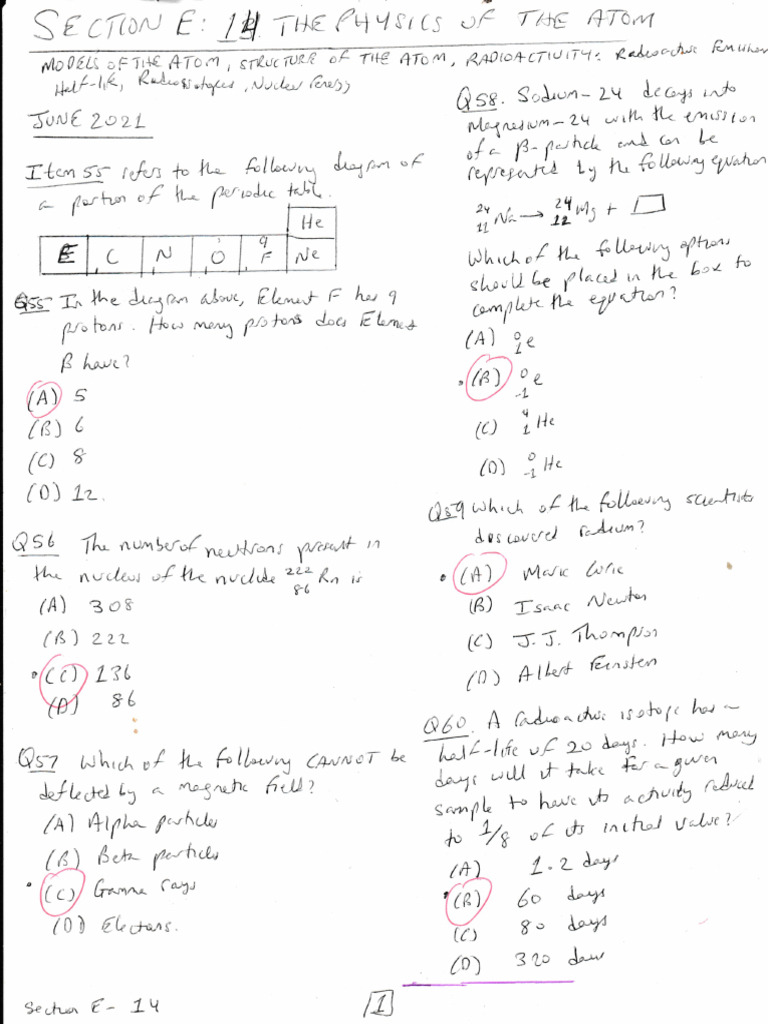 SECTION E: 14 THE PHYSICS OF THE ATOM
MODELS OF THE ATOM, STRUCTURE OF THE ATOM, RADIOACTIVITY: Radioactive Emission
Half-life, Radioisotopes, Nuclear Energy
JUNE 2021
Item 55 refers to the following diagram of
a portion of the periodic table.
He
C N O 9 F Ne
Q55 In the diagram above, Element F has 9
protons. How many protons does Element
B have?
(A) 5
(B) 6
(C) 8
(D) 12.
Q56 The number of neutrons present in
the nucleus of the nuclide 222 86 Rn is
(A) 308
(B) 222
(C) 136
(D) 86
Q57 Which of the following CANNOT be
deflected by a magnetic field?
(A) Alpha particles
(B) Beta particles
(C) Gamma rays
(D) Electrons.
Q58. Sodium-24 decays into
Magnesium-24 with the emission
of a β-particle and can be
represented by the following equation
24 11 Na → 24 12 Mg + □
Which of the following options
should be placed in the box to
complete the equation?
(A) 0 1 e
(B) 0 -1 e
(C) 4 1 He
(D) 0 -1 He
Q59 Which of the following scientists
discovered radium?
(A) Marie Curie
(B) Isaac Newton
(C) J.J. Thompson
(D) Albert Einstein
Q60. A radioactive isotope has a
half-life of 20 days. How many
days will it take for a given
sample to have its activity reduced
to 1/8 of its initial value?
(A) 1.2 days
(B) 60 days
(C) 80 days
(D) 320 days
Section E- 14
1